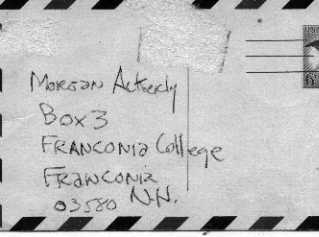 Morgan Ackerly
Box 3
FRANCONIA College
FRANCONIA
03580 N.H.